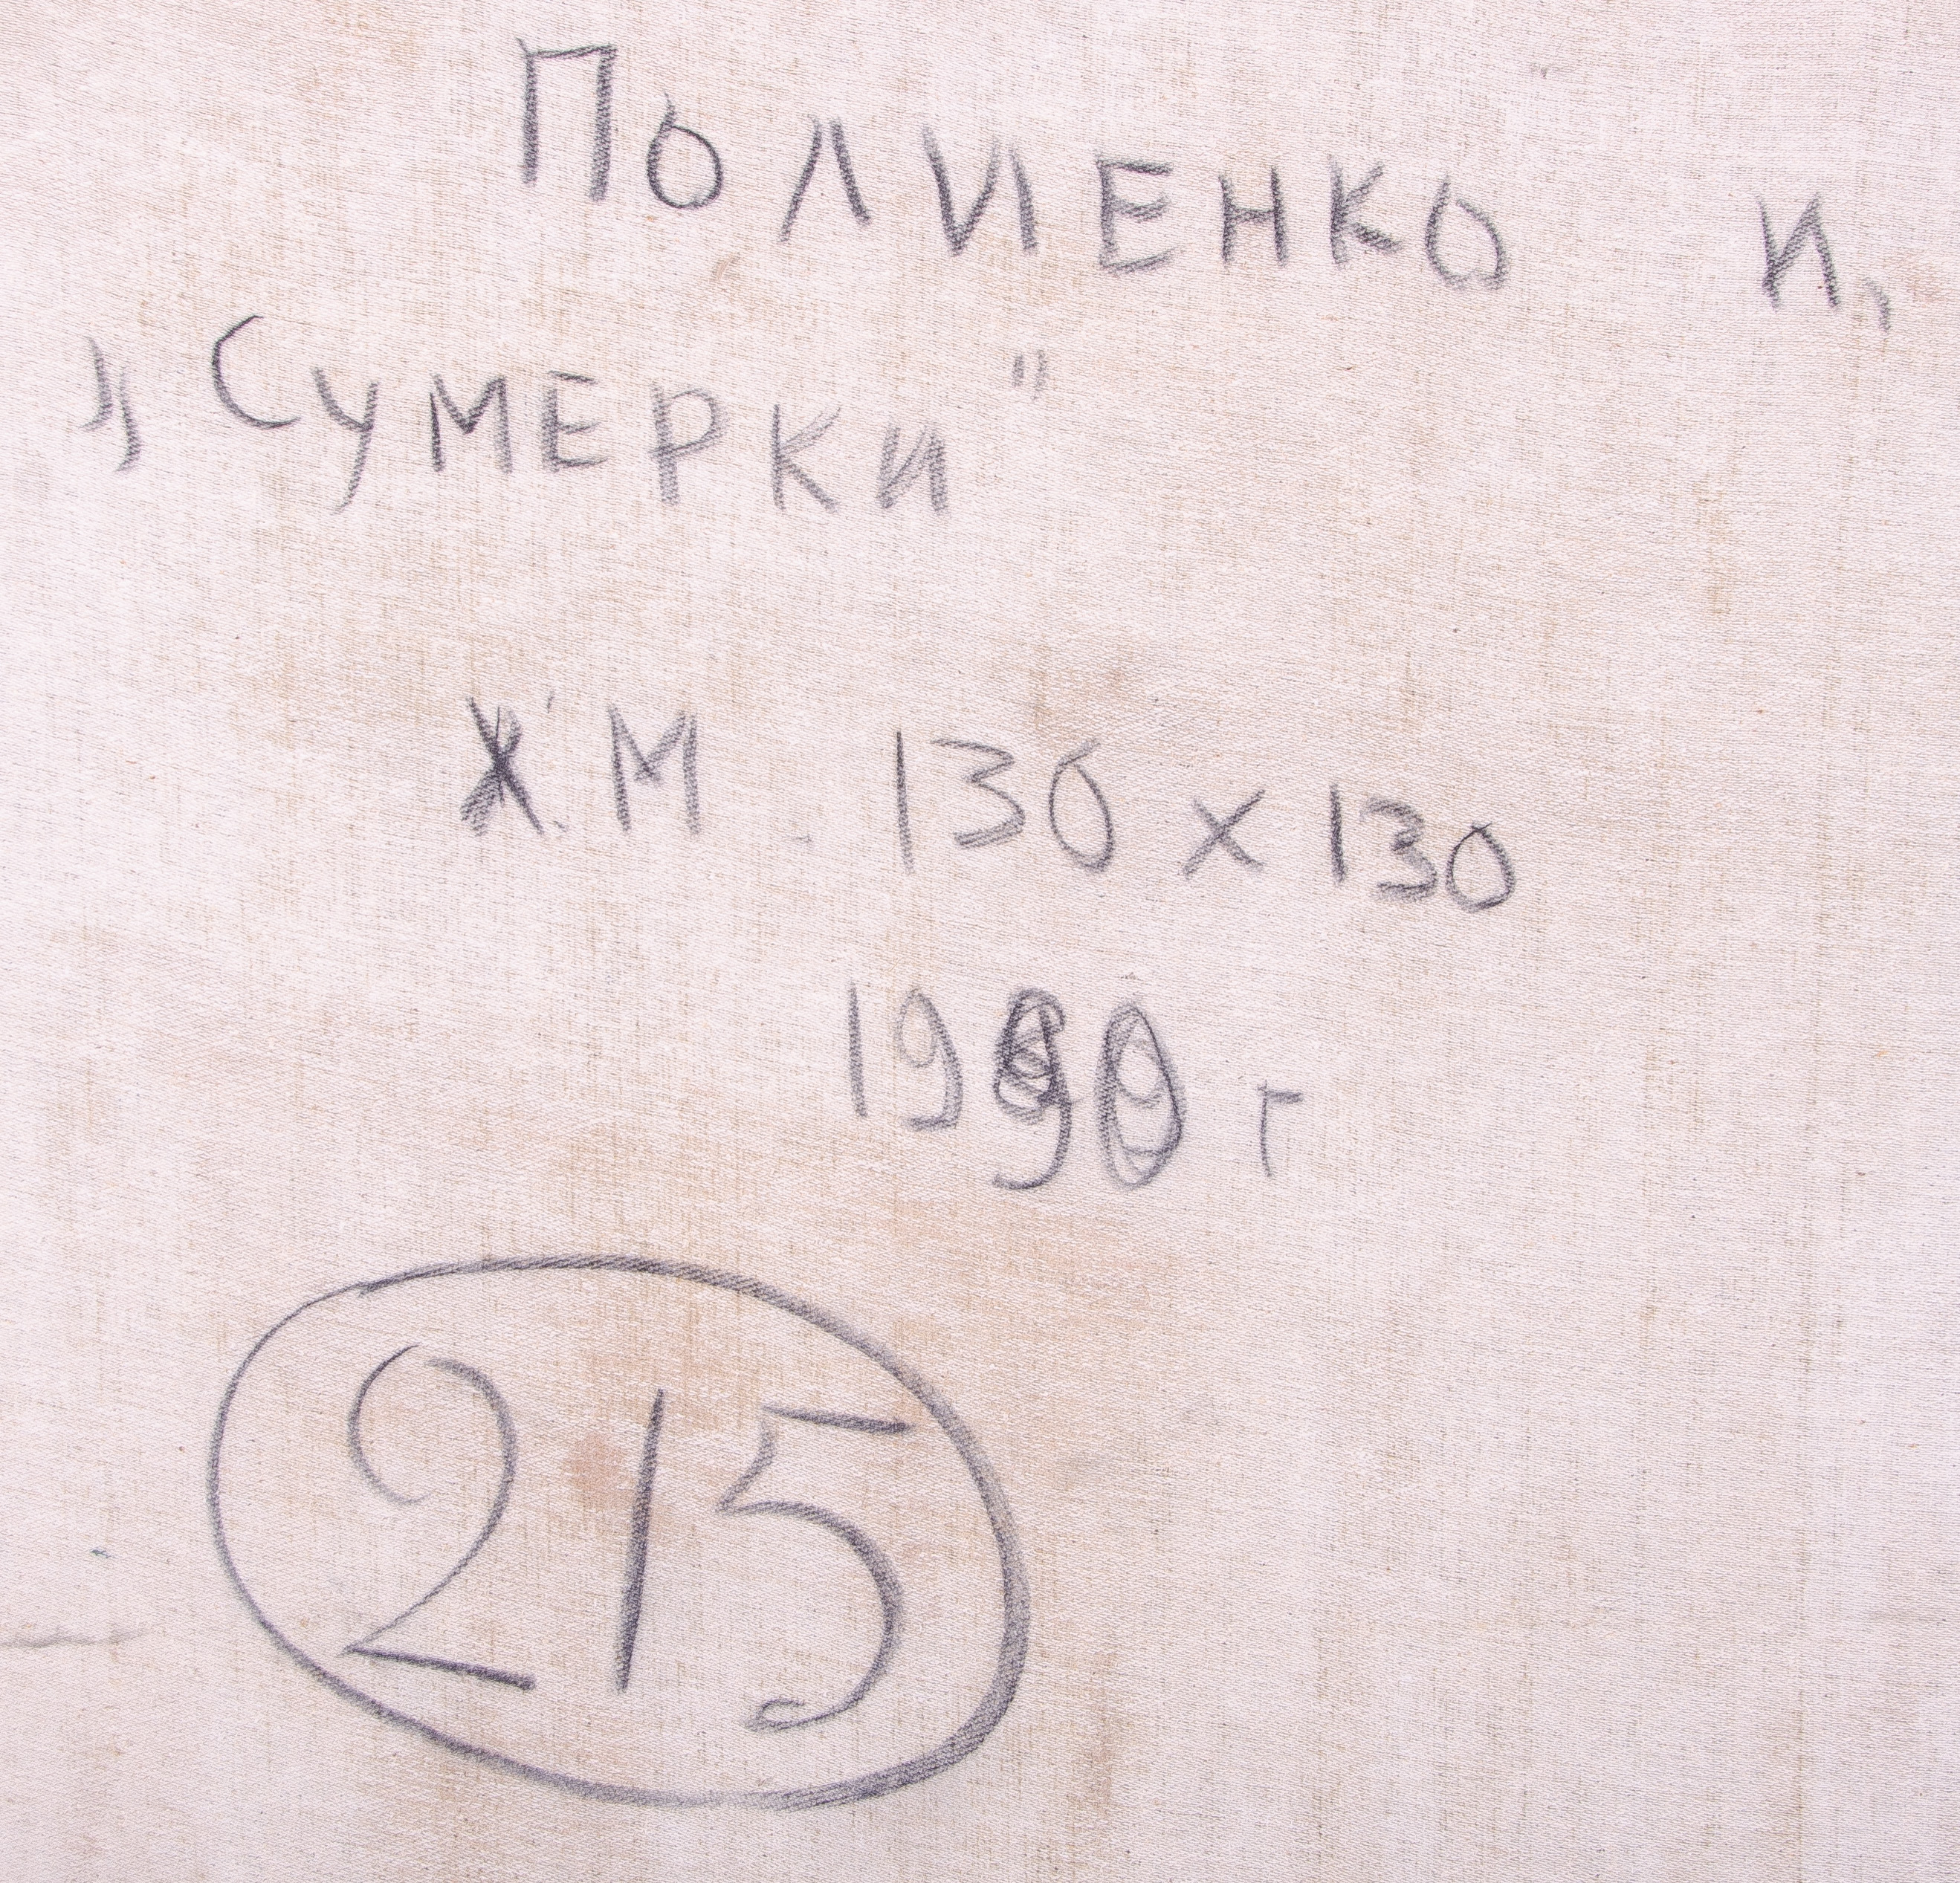 ПОЛИЕНКО И,
„Сумерки"
Х.М. 130 х 130
1990 г
215